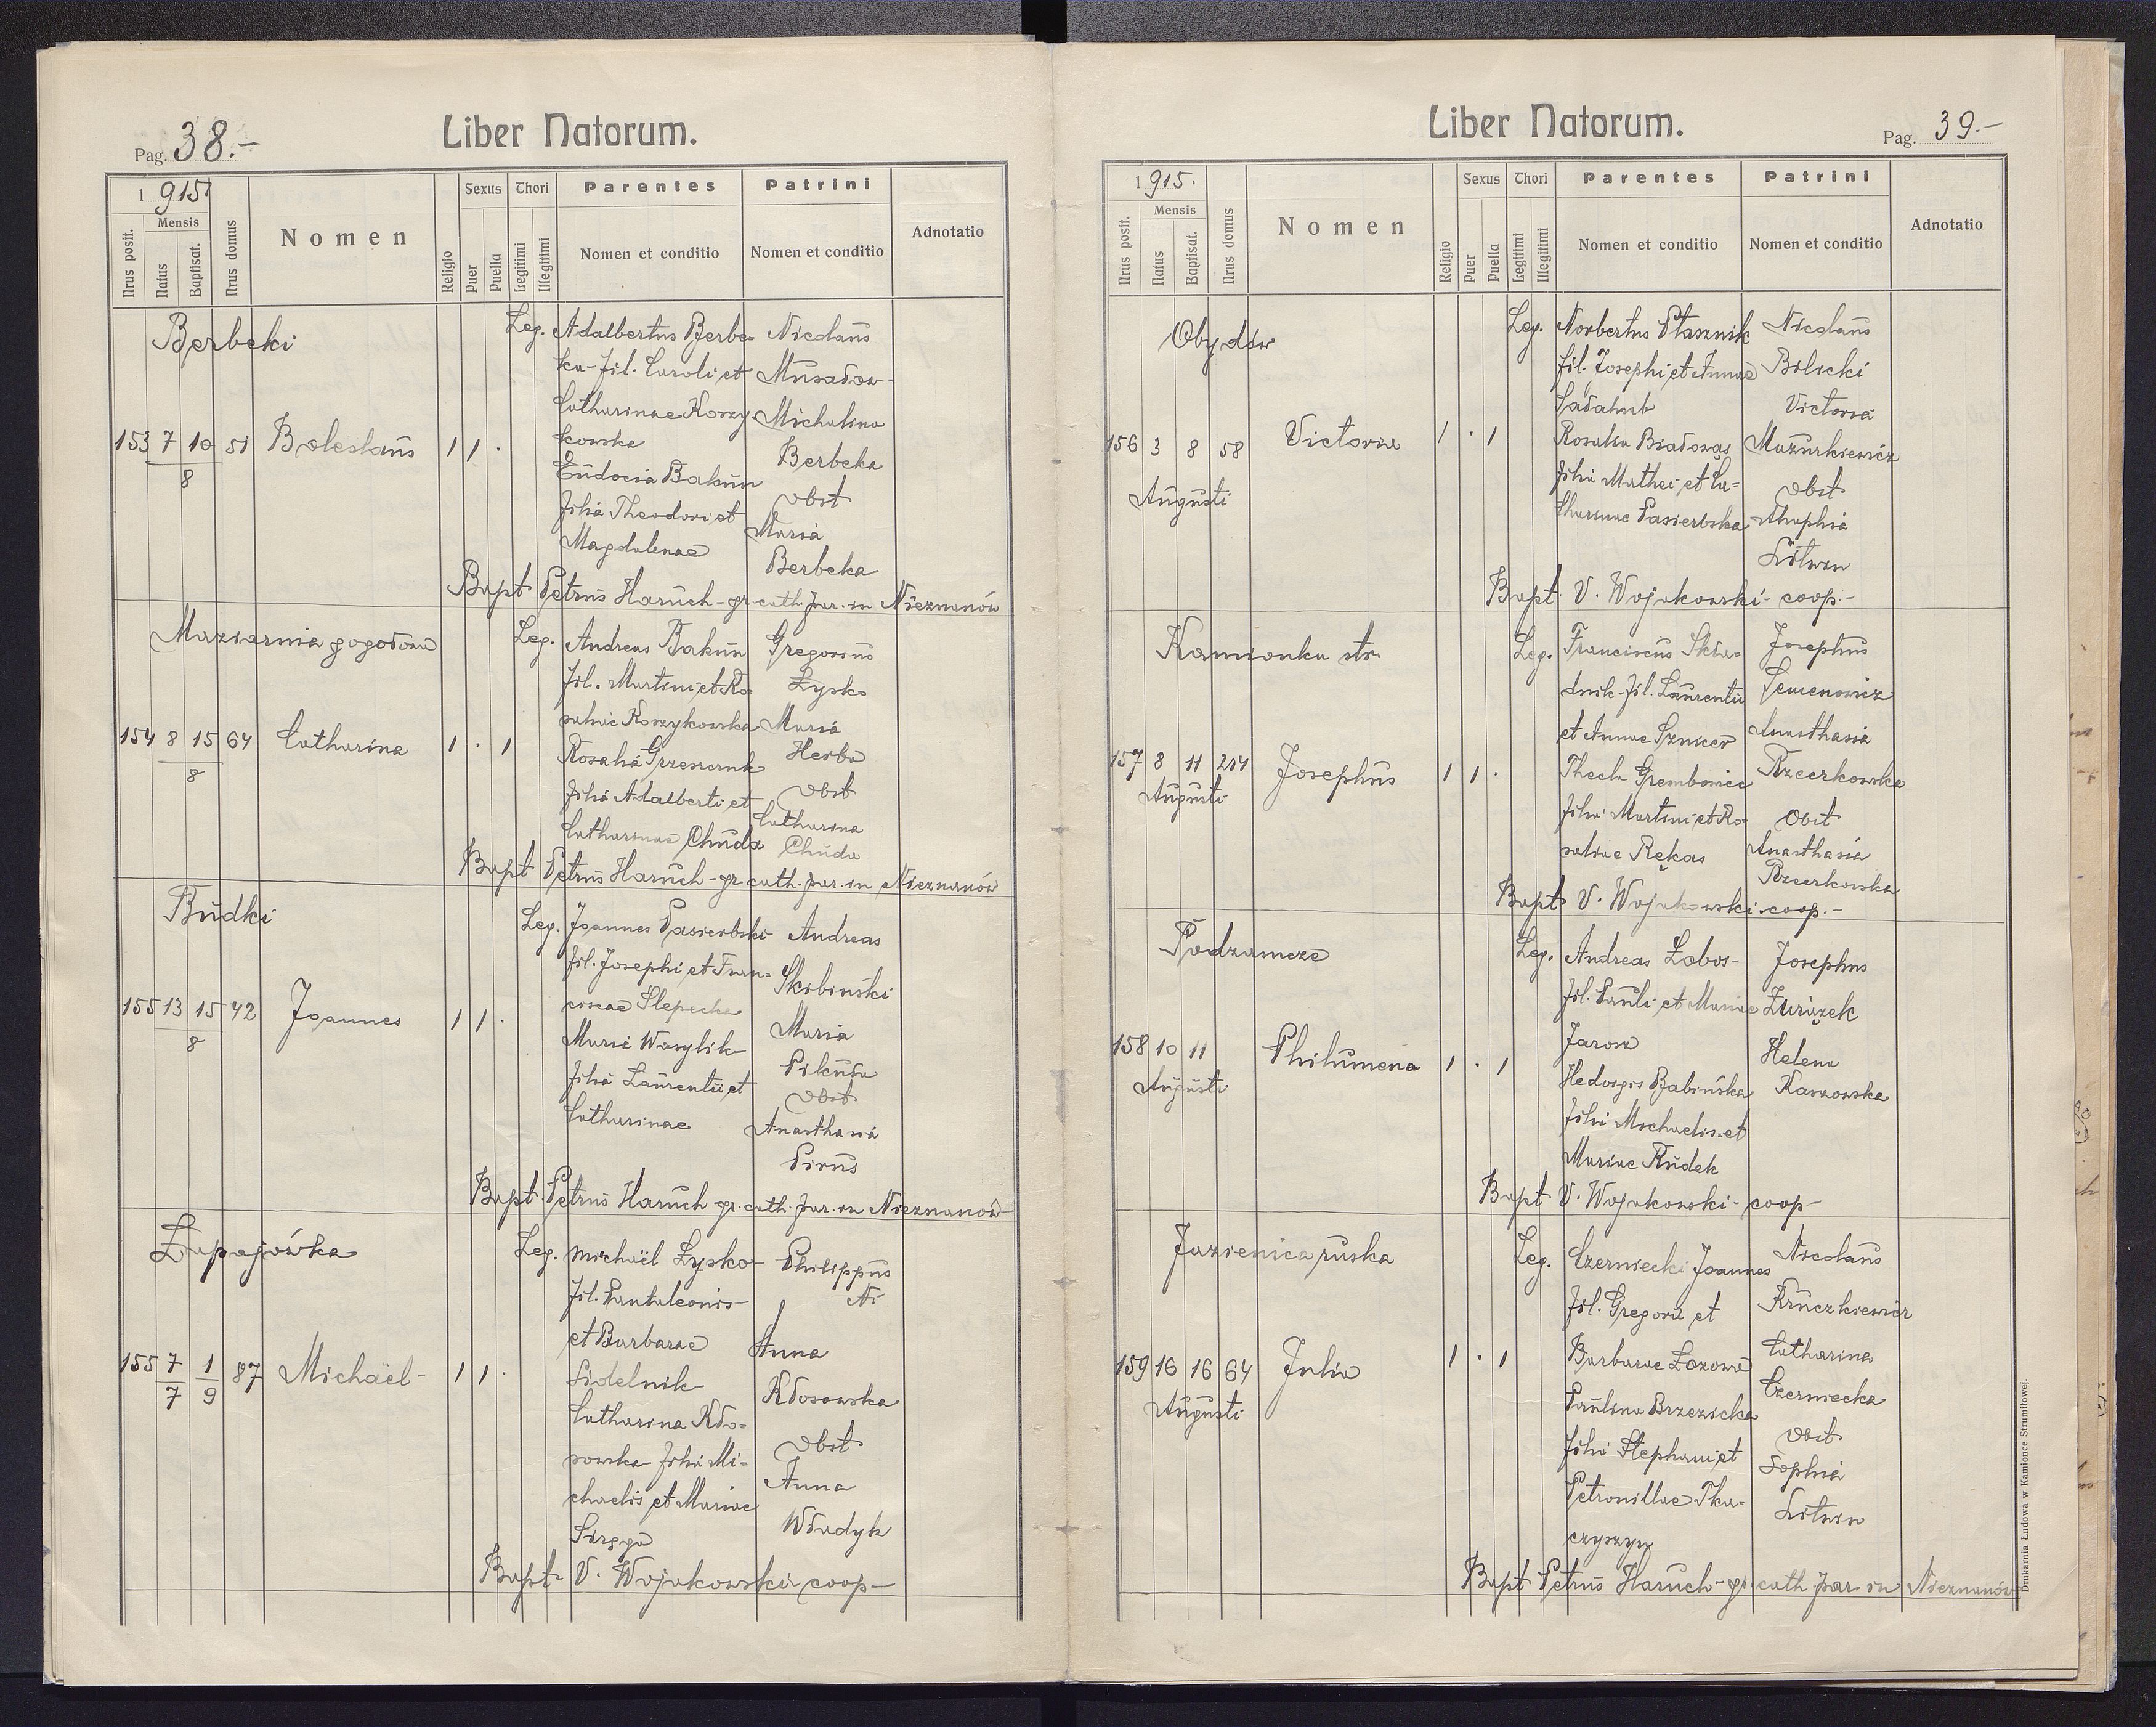 Pag. 38.-
Liber Natorum.
1915
Nrus posit.
Mensis
Natus
Baptisat.
Nrus domus
Nomen
Religio
Sexus
Puer
Puella
Thori
Legitimi
Illegitimi
Parentes
Nomen et conditio
Patrini
Nomen et conditio
Adnotatio
Berbeki
153 7 10 51 Boleslaus 1 1 .
8
Leg. Adalbertus Berbe-
ka-fil. Caroli et
Catharinae Koszy
kowska
Eudocia Bakun
filia Theodori et
Magdalenae
Nicolaus
Musadow-
Michalina
Berbeka
obst
Maria
Berbeka
Bapt Petrus Haruch-gr-cath. par. in Nieznanów
Maziarnia gogołowa
154 8 15 64 Catharina 1 . 1
8
Leg. Andreas Bakun
fil. Martini et Ro-
saliae Koszykowska
Rosalia Grzeszczuk
filia Adalberti et
Catharinae Chuda
Gregorius
Łysko
Maria
Herba
obst
Catharina
Chuda
Bapt Petrus Haruch-gr. cath. par. in Nieznanów
Budki
155 13 15 42 Joannes 1 1 .
8
Leg. Joannes Pasierbski
fil. Josephi et Fran-
ciscae Slepecka
Maria Wasylik
filia Laurentii et
Catharinae
Andreas
Skibiński
Maria
Pikuła
obst
Anasthasia
Pirus
Bapt. Petrus Haruch gr. cath. par. in Nieznanów
Łapajówka
155 7 1 87 Michaël- 1 1 .
7 9
Leg. Michaël Łysko
fil. Pantaleonis-
et Barbarae
Sidelnik
Catharina Kło-
sowska filia Mi-
chaelis et Mariae
Philippus
Ni
Anna
Kłosowska
obst
Anna
Władyk
Bapt V. Wojakowski coop-
Pag. 39.-
Liber Natorum.
1915.
Nrus posit.
Mensis
Natus
Baptisat.
Nrus domus
Nomen
Religio
Sexus
Puer
Puella
Thori
Legitimi
Illegitimi
Parentes
Nomen et conditio
Patrini
Nomen et conditio
Adnotatio
Obydów
156 3 8 58 Victoria 1 . 1
Augusti
Leg. Norbertus Ptasznik
fil. Josephi et Annae
Rosalia Białowąs
filia Mathei et Ca-
tharinae Pasierbska
Nicolaus
Bilicki
Victoria
Mazurkiewicz
obst
Litwin
Bapt. V. Wojakowski-coop.-
Kamionka str.
157 8 11 214 Josephus 1 1 .
Augusti
Leg. Franciscus Skła-
dnik-fil. Laurentii
et Annae Sznicer
Thecla Grembowicz
filia Martini et Ro-
saliae Rękas
Josephus
Semenowicz
Anasthasia
Rzeczkowska
obst
Anasthasia
Rzeczkowska
Bapt V. Wojakowski-coop.-
Podzamcze
158 10 11 Philumena 1 . 1
Augusti
Leg. Andreas Łobos-
fil. Pauli et Mariae
Jarosz
Hedvigis Babińska
filia Michaelis et
Mariae Rudek
Josephus
Związek
Helena
Kaszowska
Bapt V. Wojakowski-coop-
Jazienica ruska
159 16 16 64 Julia 1 . 1
Augusti
Leg. Czerniecki Joannes
fil. Gregorii et
Barbarae Łozowa
Paulina Brzezicka
filia Stephani et
Petronillae Tka-
czyszyn
Nicolaus
Kruczkiewicz
Catharina
Czerniecka
obst
Sophia
Litwin
Bapt Petrus Haruch-gr. cath par in Nieznanów
Drukarnia Ludowa w Kamionce Strumiłowej.